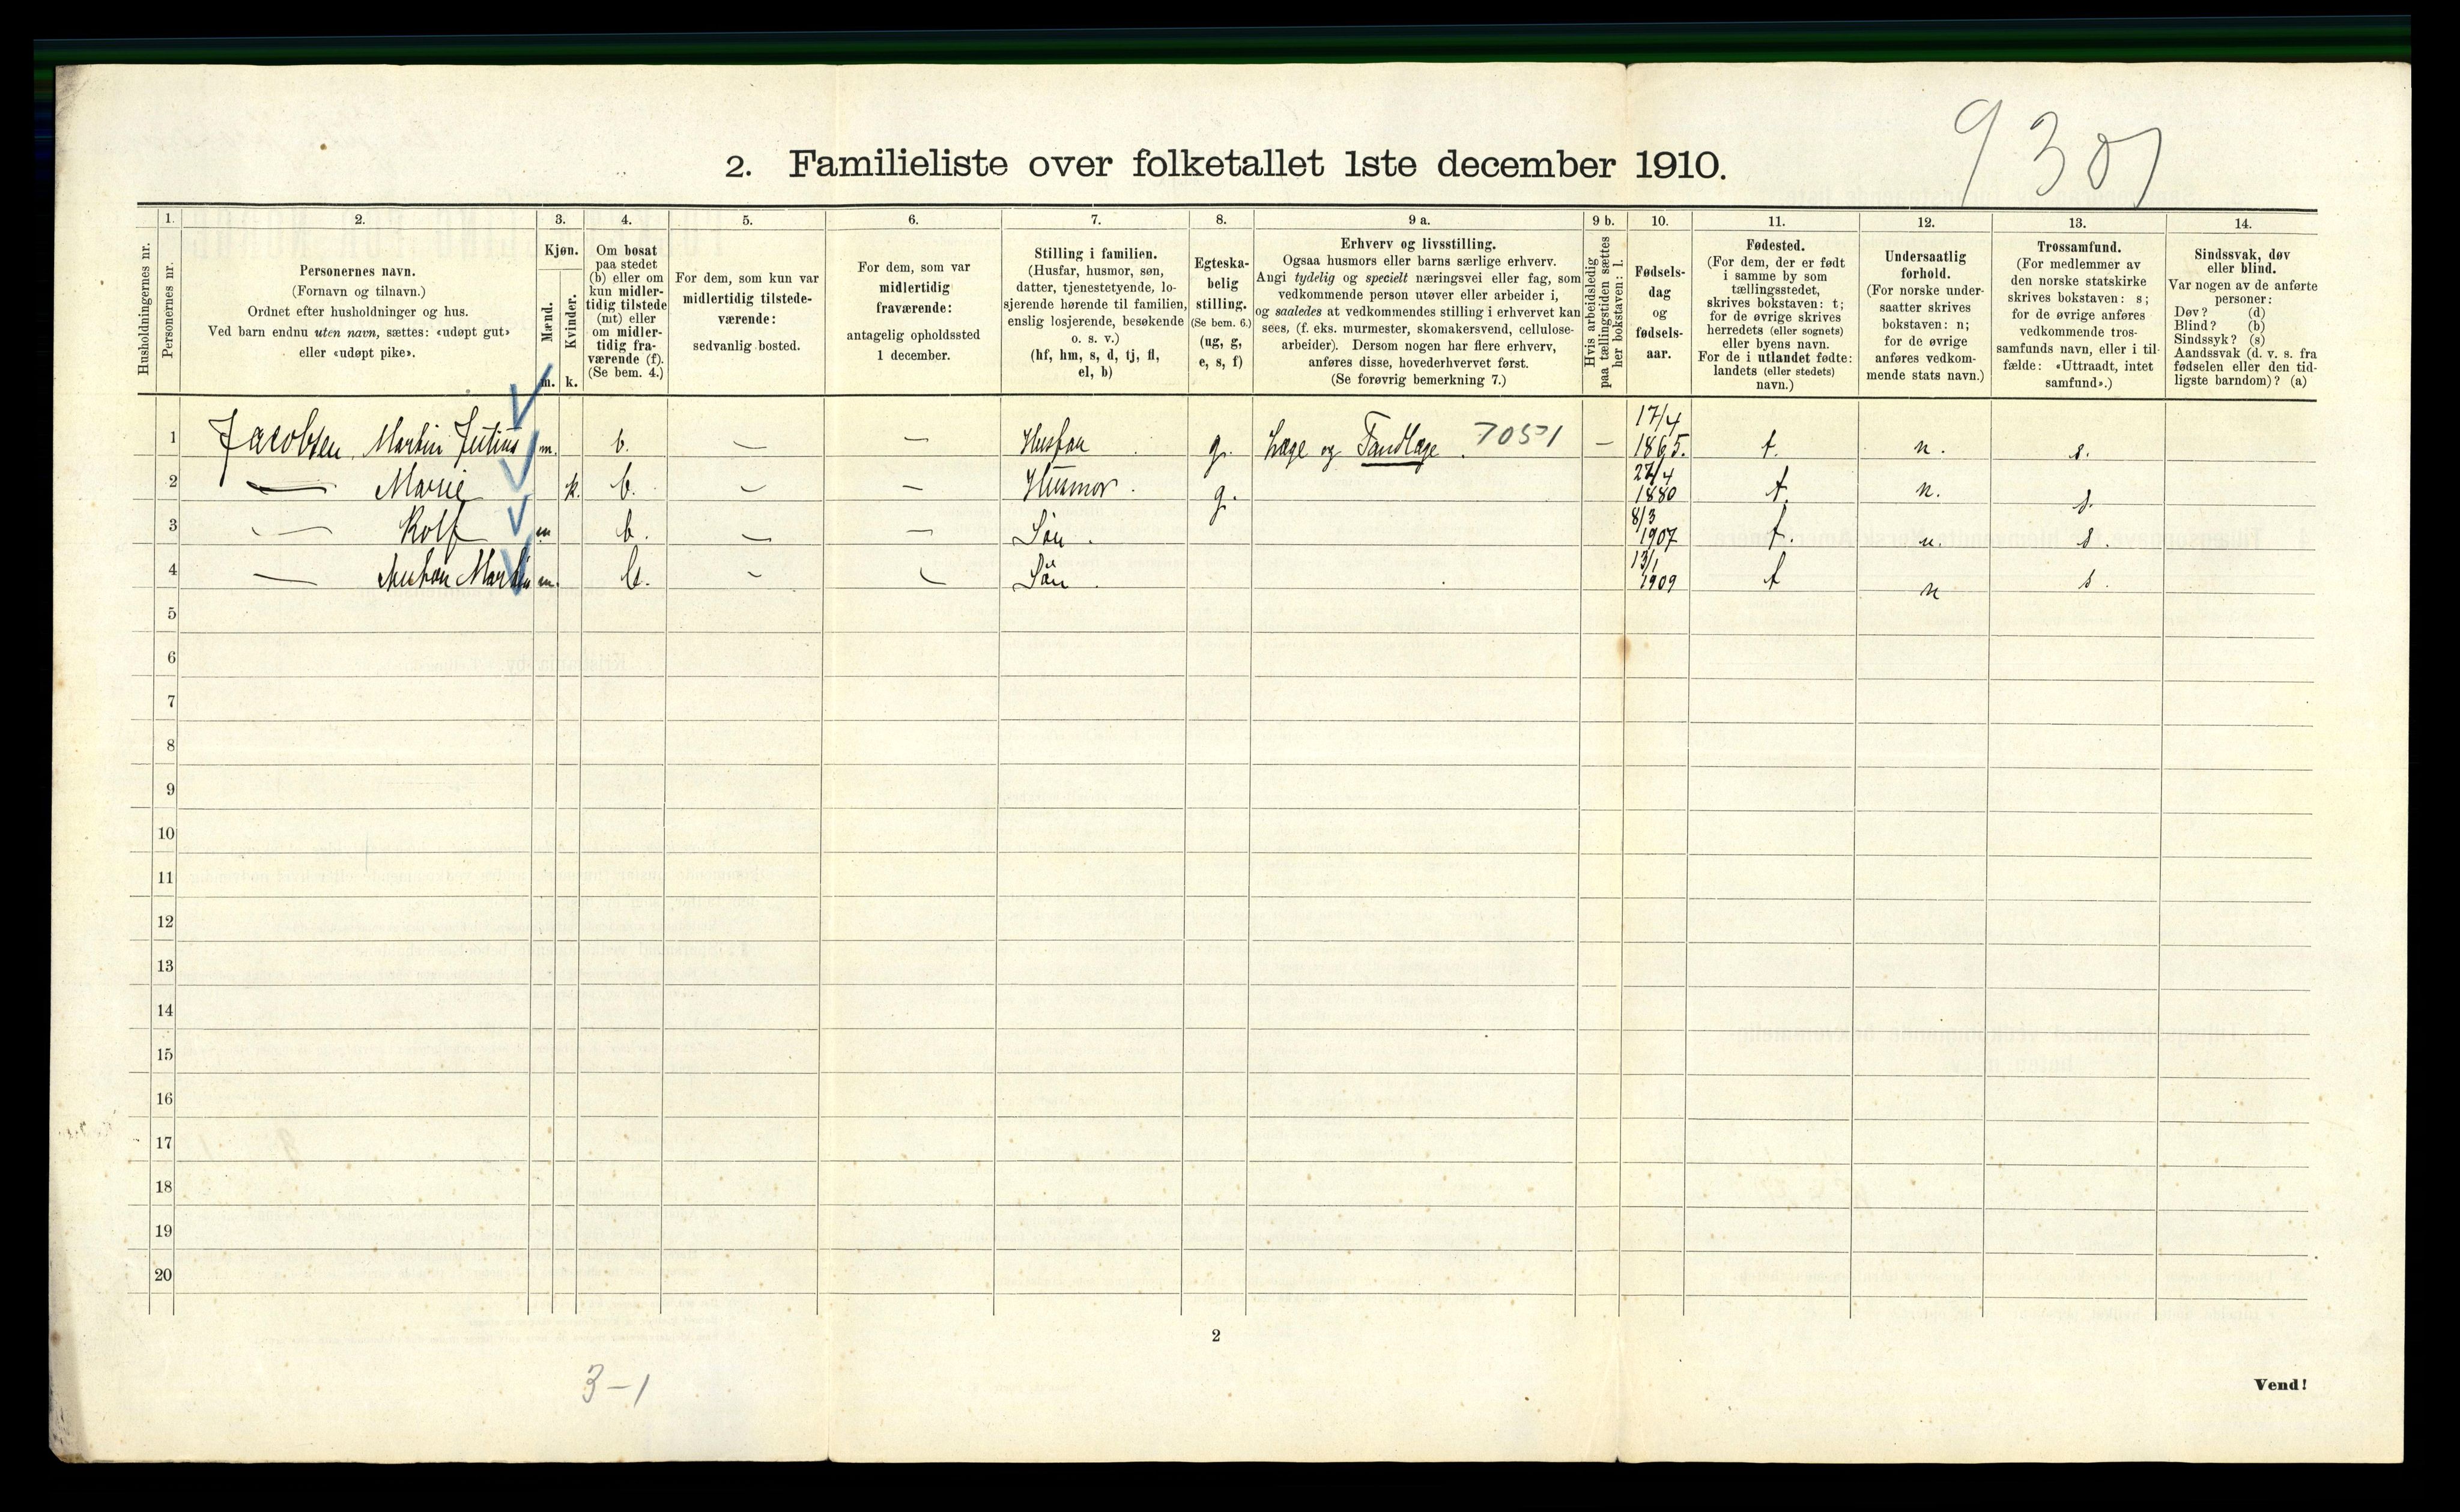 9301
2. Familieliste over folketallet 1ste december 1910.
Husholdningernes nr.
1. Personernes nr.
2.
Personernes navn.
(Fornavn og tilnavn.)
Ordnet efter husholdninger og hus.
Ved barn endnu uten navn, sættes: «udøpt gut»
eller «udøpt pike».
3.
Kjøn.
Mænd. m.
Kvinder. k.
4.
Om bosat
paa stedet
(b) eller om
kun midler-
tidig tilstede
(mt) eller
om midler-
tidig fra-
værende (f).
(Se bem. 4.)
5.
For dem, som kun var
midlertidig tilstede-
værende:
sedvanlig bosted.
6.
For dem, som var
midlertidig
fraværende:
antagelig opholdssted
1 december.
7.
Stilling i familien.
(Husfar, husmor, søn,
datter, tjenestetyende, lo-
sjerende hørende til familien,
enslig losjerende, besøkende
o. s. v.)
(hf, hm, s, d, tj, fl,
el, b)
8.
Egteska-
belig
stilling.
(Se bem. 6.)
(ug, g,
e, s, f)
9 a.
Erhverv og livsstilling.
Ogsaa husmors eller barns særlige erhverv.
Angi tydelig og specielt næringsvei eller fag, som
vedkommende person utøver eller arbeider i,
og saaledes at vedkommendes stilling i erhvervet kan
sees, (f. eks. murmester, skomakersvend, cellulose-
arbeider). Dersom nogen har flere erhverv,
anføres disse, hovederhvervet først.
(Se forøvrig bemerkning 7.)
9 b.
Hvis arbeidsledig
paa tællingstiden sættes
her bokstaven: l.
10.
Fødsels-
dag
og
fødsels-
aar.
11.
Fødested.
(For dem, der er født
i samme by som
tællingsstedet,
skrives bokstaven: t;
for de øvrige skrives
herredets (eller sognets)
eller byens navn.
For de i utlandet fødte:
landets (eller stedets)
navn.)
12.
Undersaatlig
forhold.
(For norske under-
saatter skrives
bokstaven: n;
for de øvrige
anføres vedkom-
mende stats navn.)
13.
Trossamfund.
(For medlemmer av
den norske statskirke
skrives bokstaven: s;
for de øvrige anføres
vedkommende tros-
samfunds navn, eller i til-
fælde: «Uttraadt, intet
samfund».)
14.
Sindssvak, døv
eller blind.
Var nogen av de anførte
personer:
Døv? (d)
Blind? (b)
Sindssyk? (s)
Aandssvak (d. v. s. fra
fødselen eller den tid-
ligste barndom)? (a)
1 Jacobsen, Martin Julius m. b. — — Husfar g. Læge og Tandlæge. 7051 — 17/4 1865. t. n. s.
2 — Marie k. b. — — Husmor. g. 1880 t. n. s.
3 — Rolf m b. — — Sön. 8/3 1907 t. n. s.
4 — Martin m. b. — — Sön. 13/1 1909 t n s.
5
6
7
8
9
10
11
12
13
14
15
16
17
18
19
20
2
3-1
Vend!